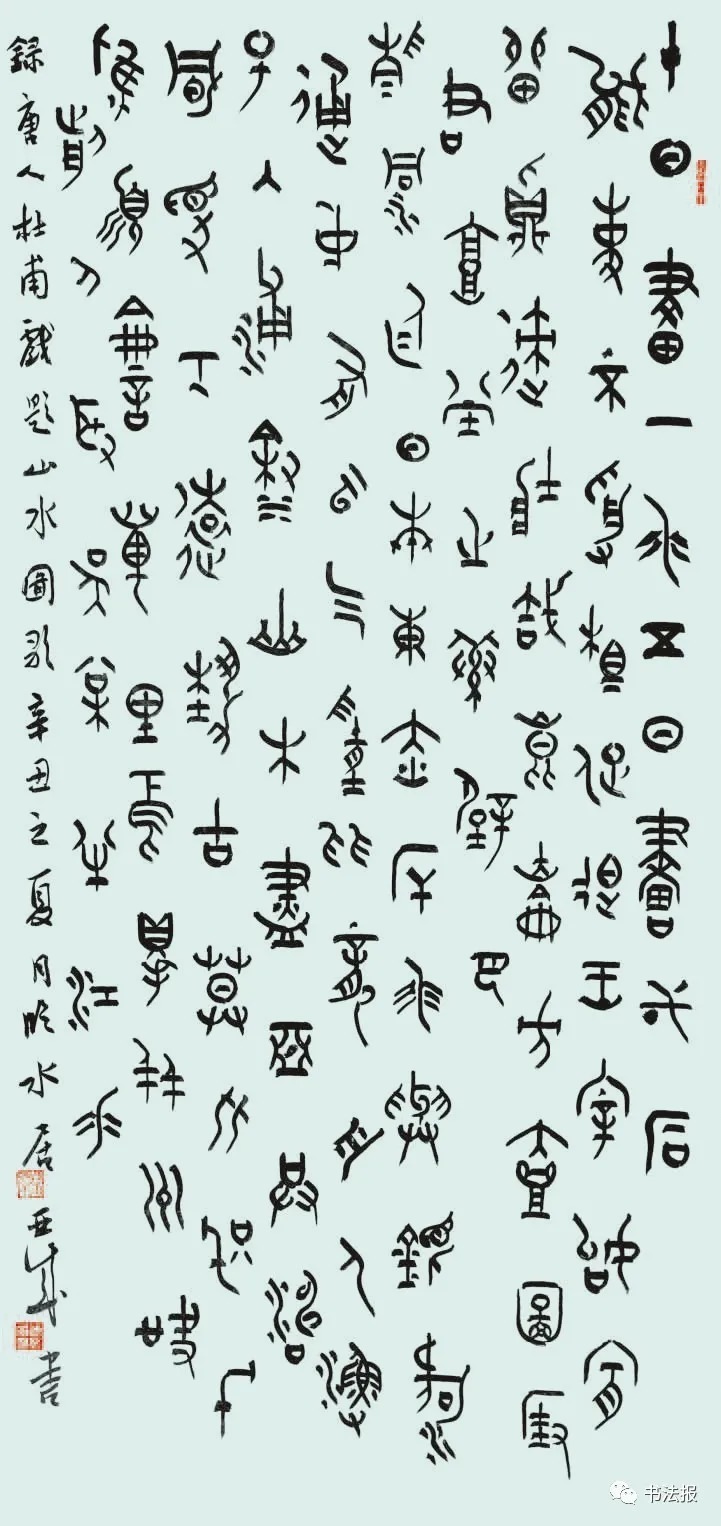 十日畫一水五日畫一石
能事不受相促迫王宰始肯
留真迹壯哉昆侖方壺圖掛
君高堂之素壁巴
陵洞庭日本東赤岸水與銀河
通中有云气隨飛龍舟人漁
子人浦漵山木盡亞洪濤
風尤工遠勢古莫比咫尺
應須論萬里焉得并州快
剪刀取吳松半江水
録唐人杜甫戲題山水圖歌辛丑之夏月水居亞書
书法报